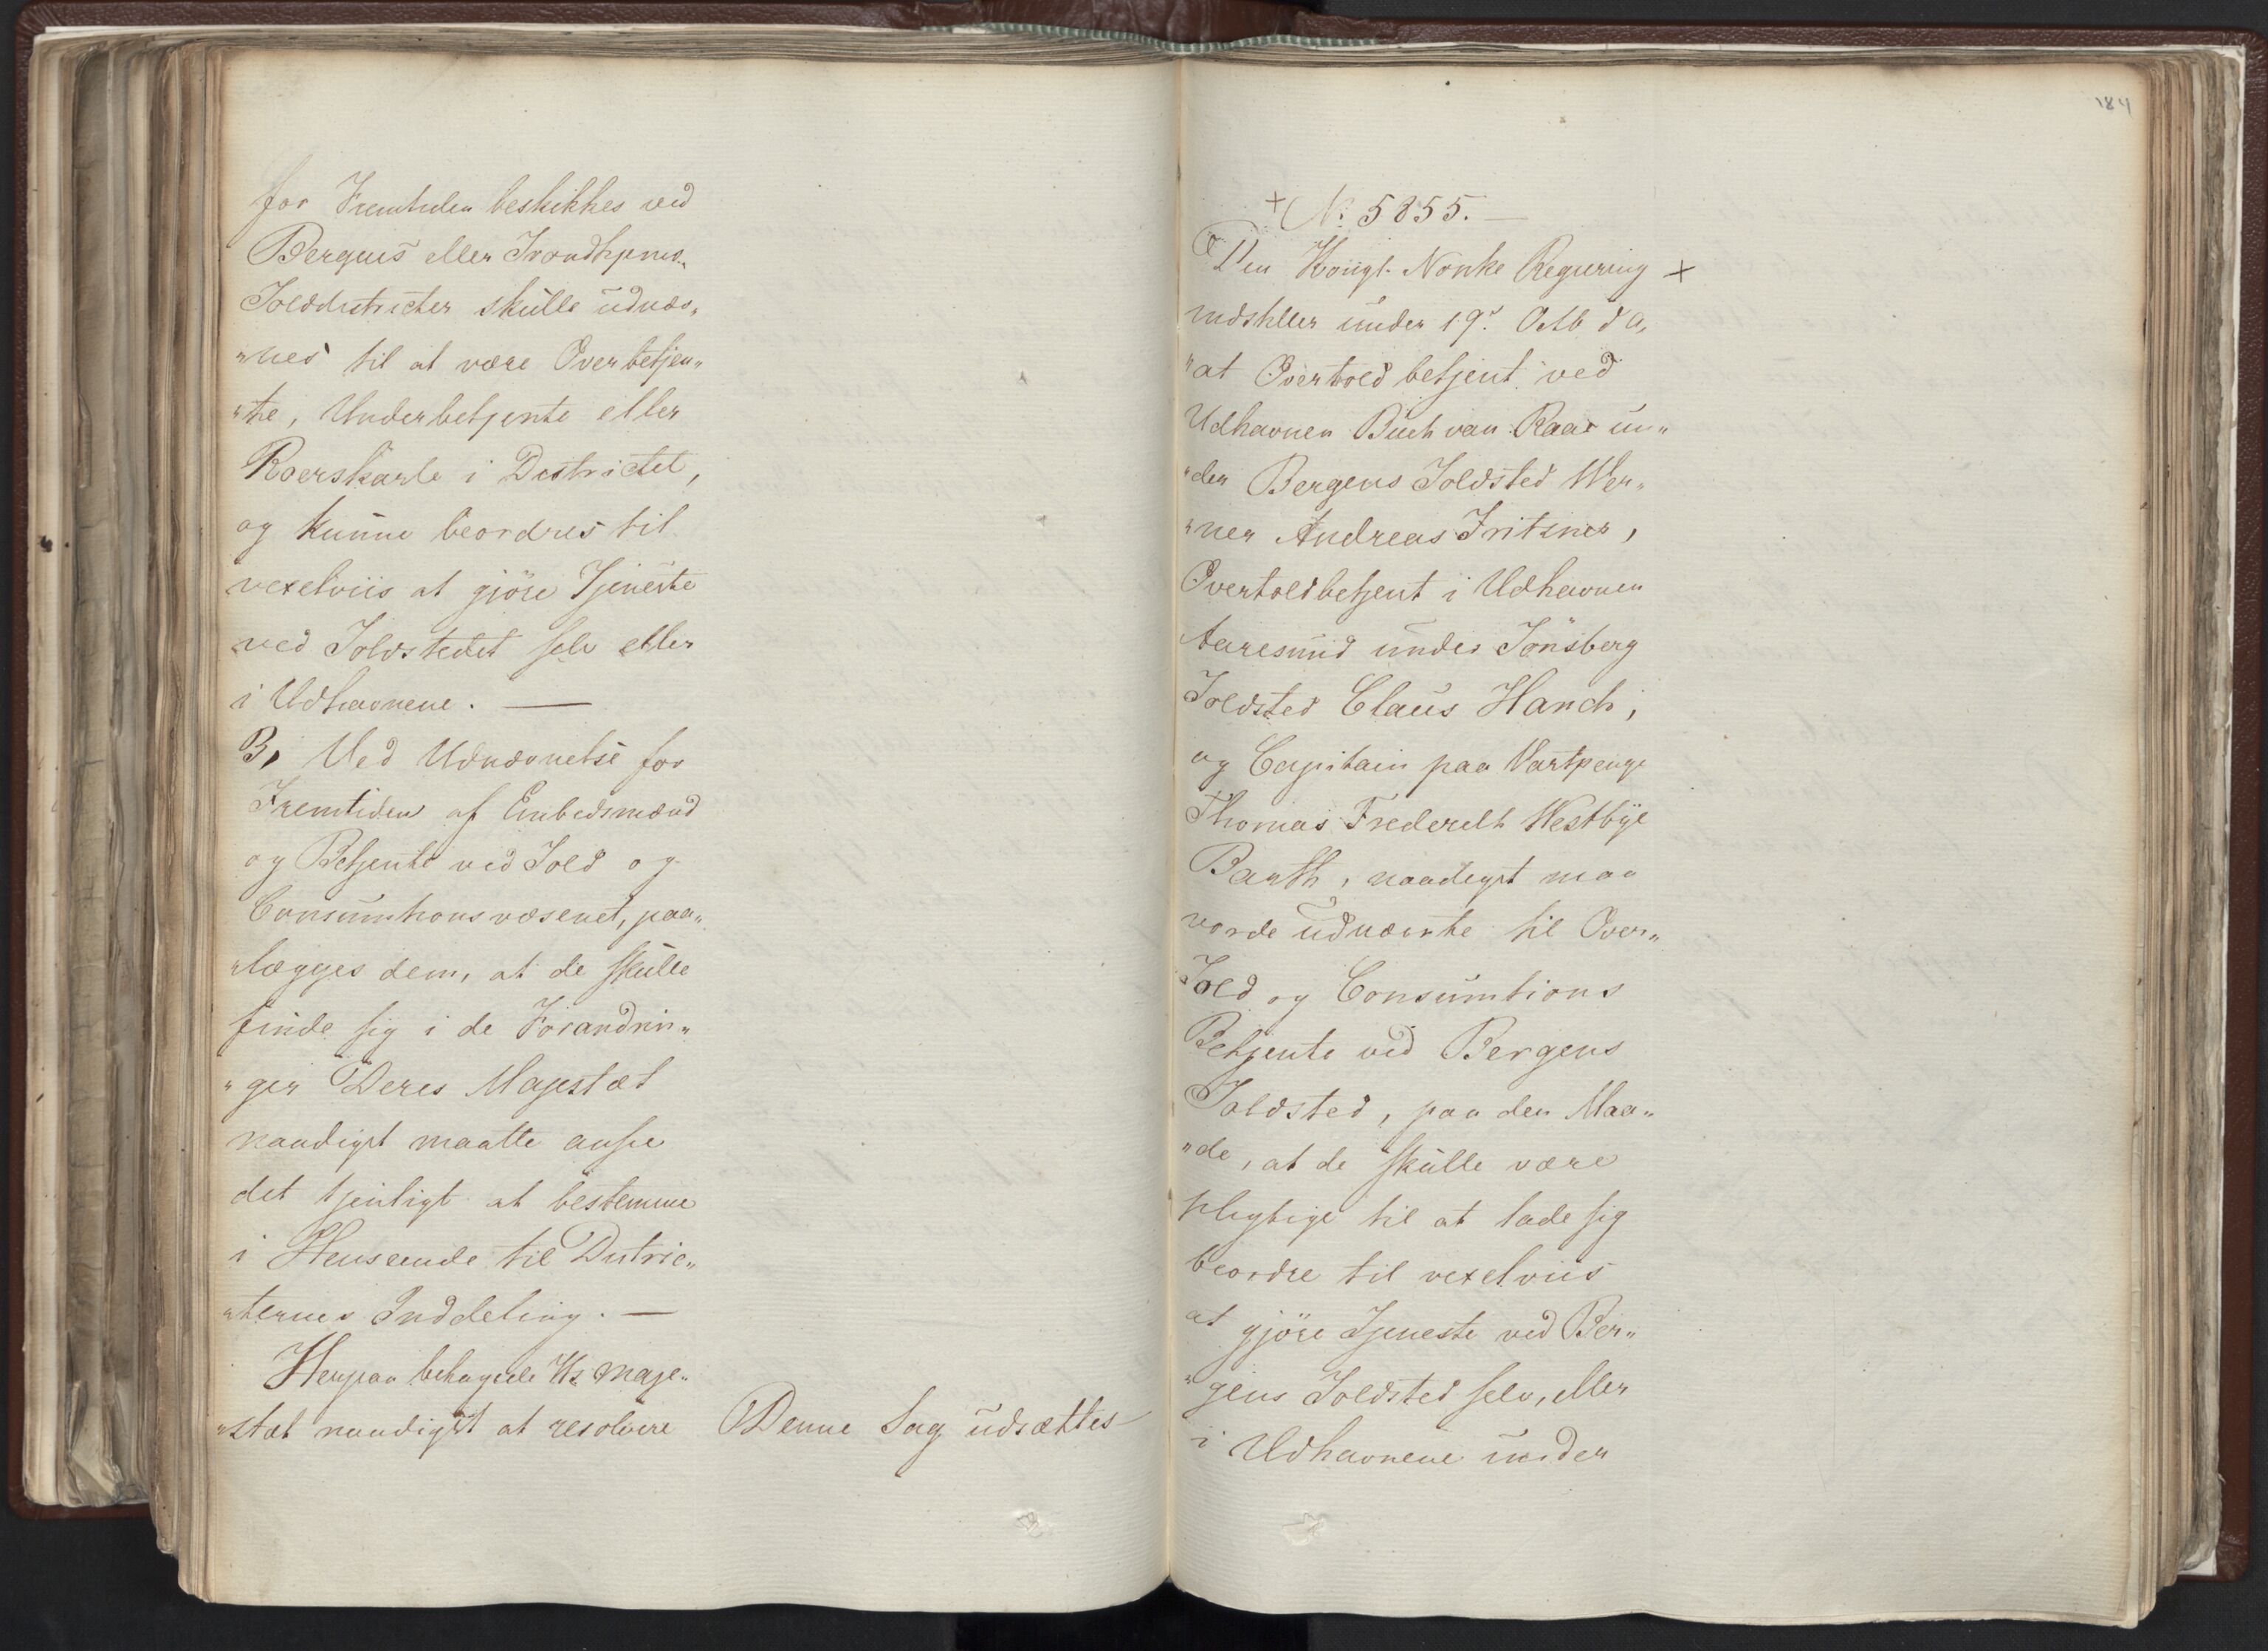 for Fremtiden beskikkes ved
Bergens eller Trondhjems
Tolddistricter skulle udnæv„
„nes til at være Overbetjen„
„te, Underbetjente eller
Roerskarle i Districtet,
og kunne beordres til
vexelviis at gjöre Tjeneste
ved Toldstedet selv eller
i Udhavnene. —
B, Ved Udnævnelse for
Fremtiden af Embedsmænd
og Betjente ved Told og
Consumtionsvæsenet, paa„
„lægges dem, at de skulle
finde sig i de Forandrin„
„ger Deres Majestæt
naadigst maatte ansee
det tjenligt at bestemme
i Henseende til Distric„
„ternes Inddeling. —
Herpaa behagede Hs Maje„
„stæt naadigst at resolvere
Denne Sag udsættes
184
+ No 5855. —
Den Kongl. Norske Regjering +
indstiller under 19d Octb d a,
"at Overtoldbetjent ved
Udhavnen Buch van Raae un„
„der Bergens Toldsted Wer„
„ner Andreas Fritzner,
Overtoldbetjent i Udhavnen
Aaresund under Tönsberg
Toldsted Claus Hanch,
og Capitain paa Vartpenge
Thomas Frederik Westbye
Barth, naadigst maa
vorde udnævnte til Over„
Told og Consumtions
Betjente ved Bergens
Toldsted, paa den Maa„
„de, at de skulle være
pligtige til at lade sig
beordre til vexelviis
at gjöre Tjeneste ved Ber„
„gens Toldsted selv, eller
i Udhavnene under